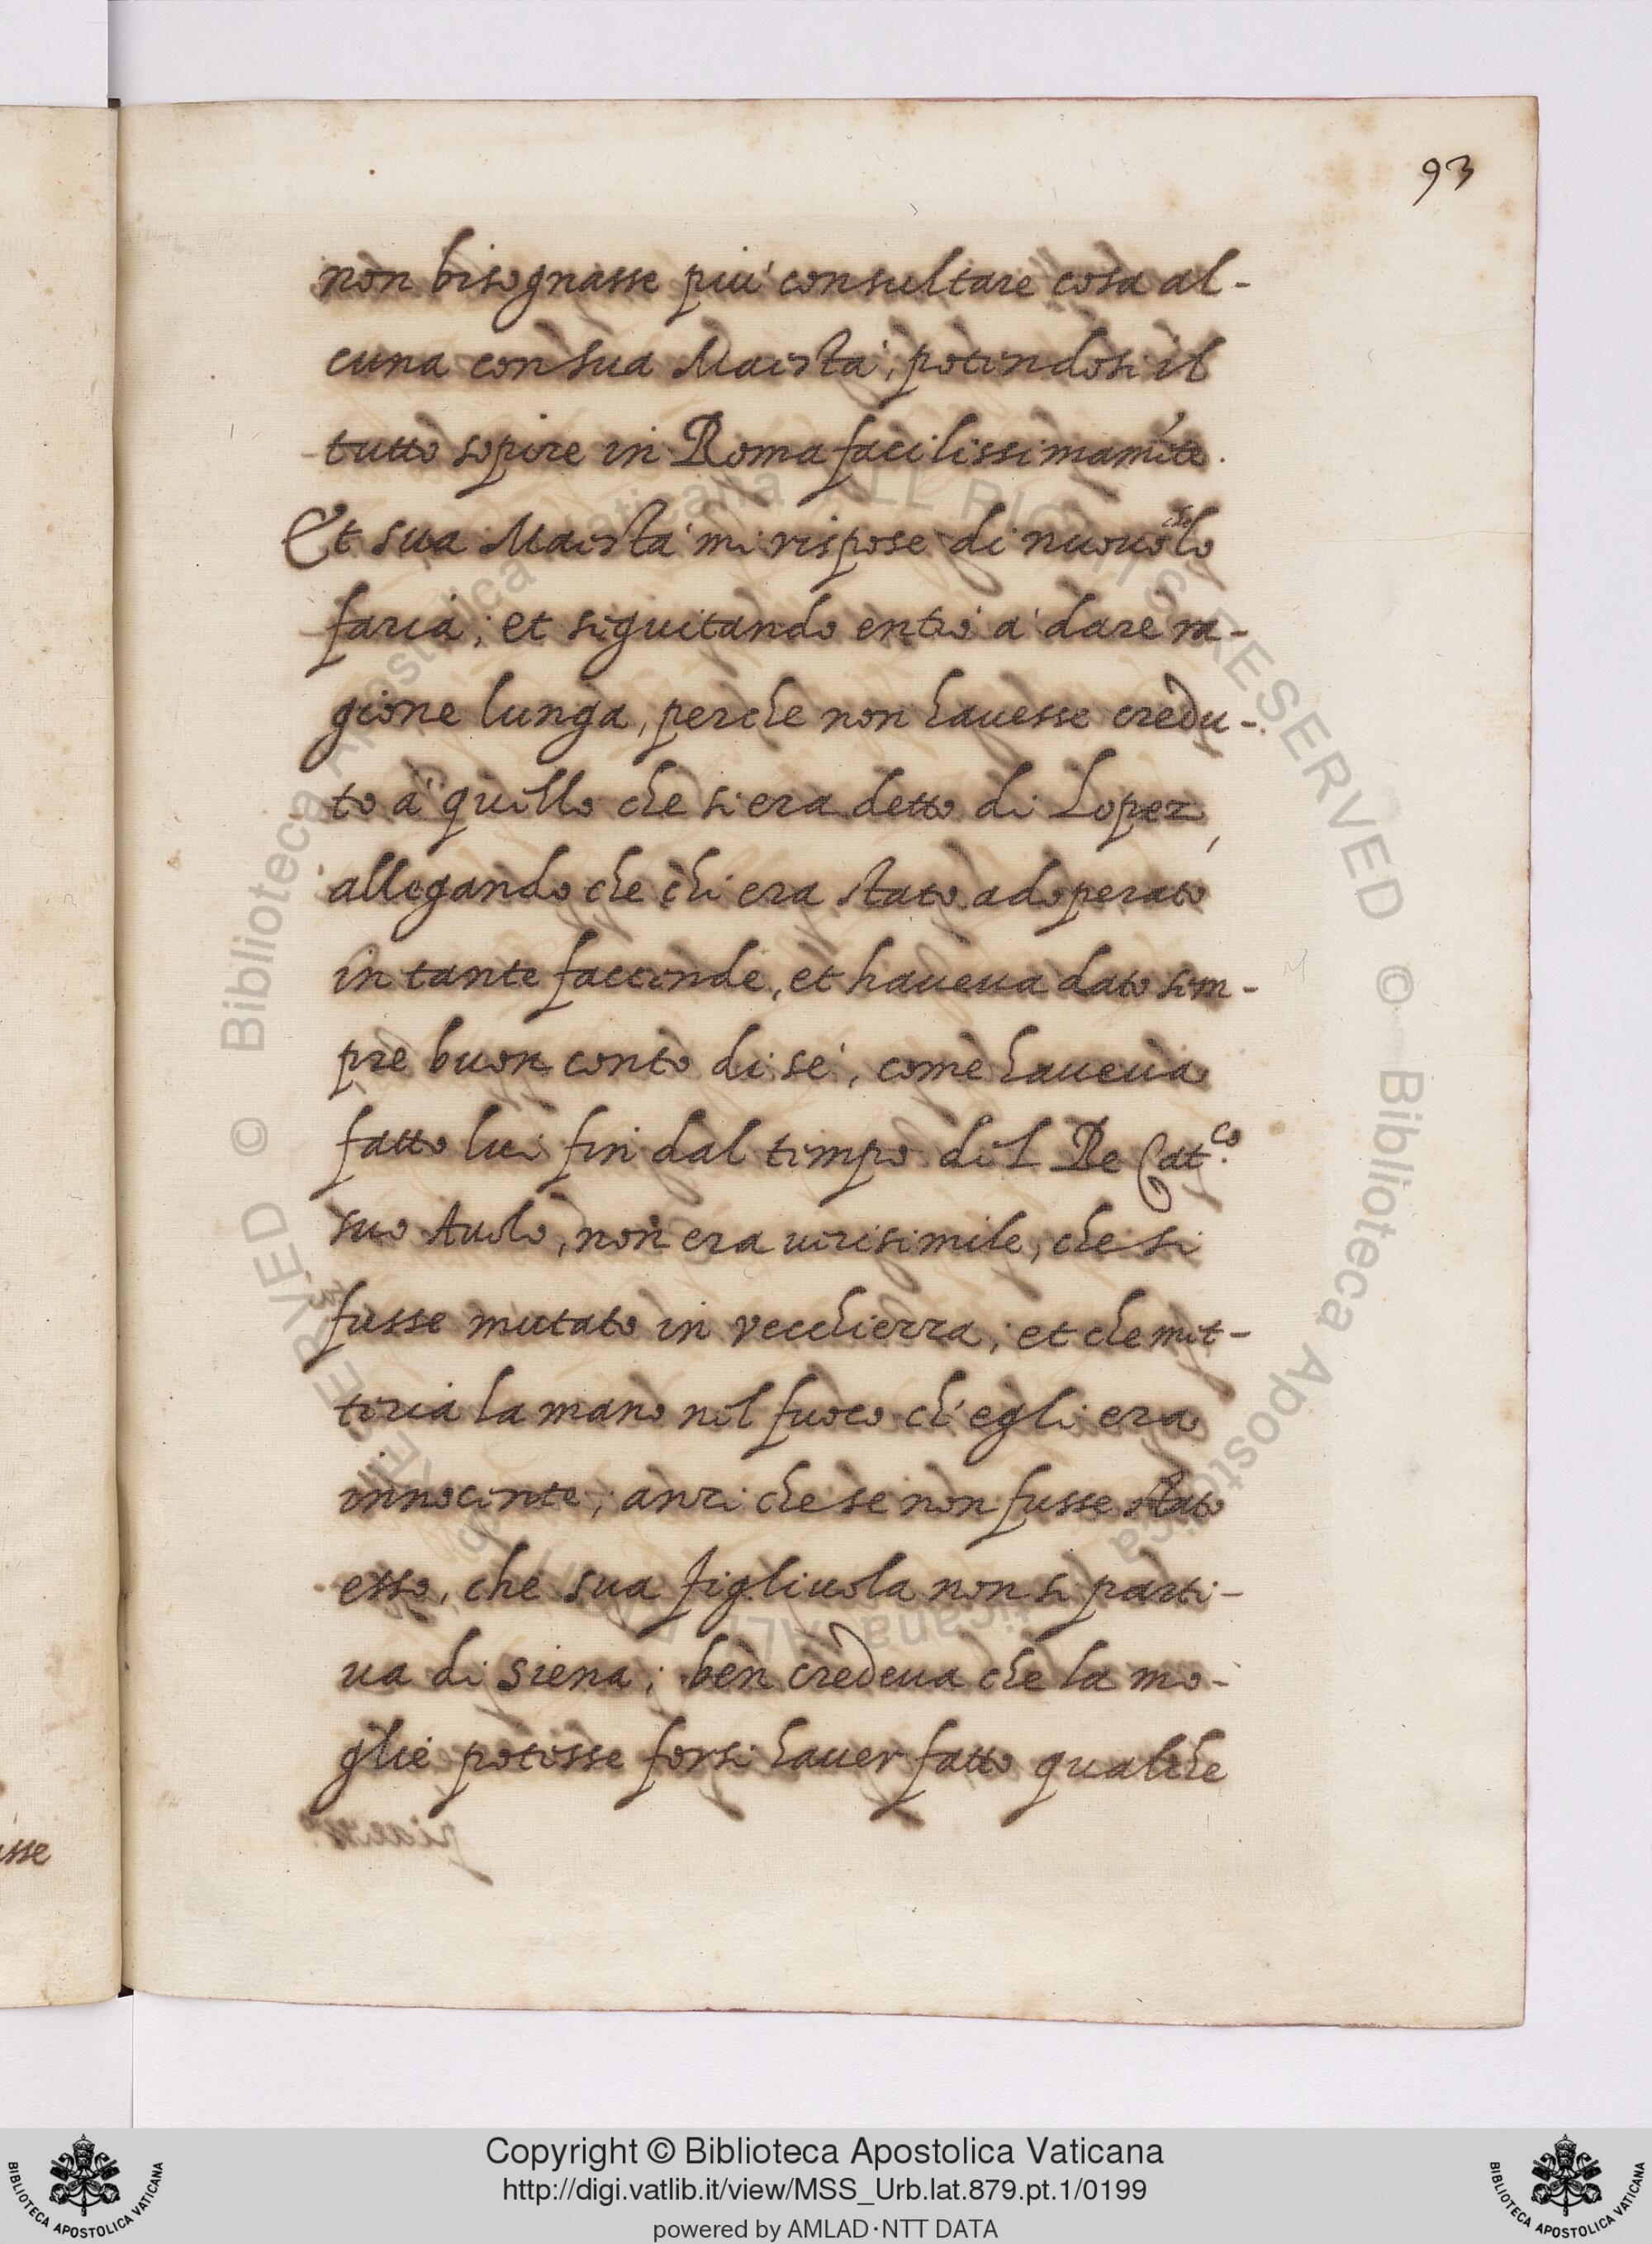 93
non bisognasse piu' consultare cosa al-
cuna con sua Maestà, potendosi il
tutto sopire in Roma facilissimamẽte.
Et sua Maestà mi rispose di nuouo che lo
faria; et seguitando entrò a' dare ra-
gione lunga, perche non hauesse credu-
to a' quello che si era detto di Lopez,
allegando che chi era stato adoperato
in tante faccende, et haueua dato sem-
pre buon conto di sé, come haueua
fatto lui fin dal tempo del Re Cat.co
suo Auolo, non era uerisimile, che si
fusse mutato in vecchiezza; et che met-
teria la mano nel fuoco ch'egli era
innocente; anzi che se non fusse stato
esso, che sua figliuola non si parti-
ua di Siena; ben credeua che la mo-
glie potesse forsi hauer fatto qualche
sse
© Biblioteca Apostolica Vaticana ALL RIGHTS RESERVED © Biblioteca Apostolica Vaticana ALL RIGHTS RESERVED
Copyright © Biblioteca Apostolica Vaticana
http://digi.vatlib.it/view/MSS_Urb.lat.879.pt.1/0199
powered by AMLAD·NTT DATA
BIBLIOTECA APOSTOLICA VATICANA
BIBLIOTECA APOSTOLICA VATICANA